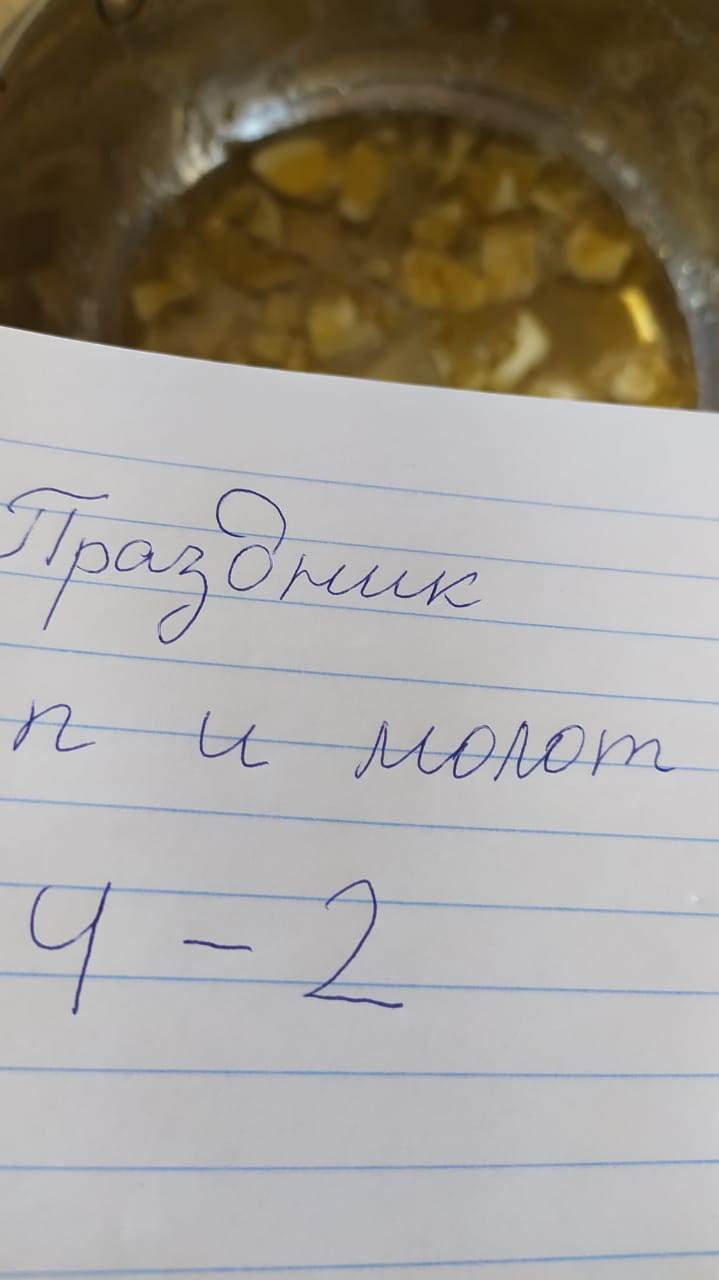 Праздник
п и молот
4 - 2